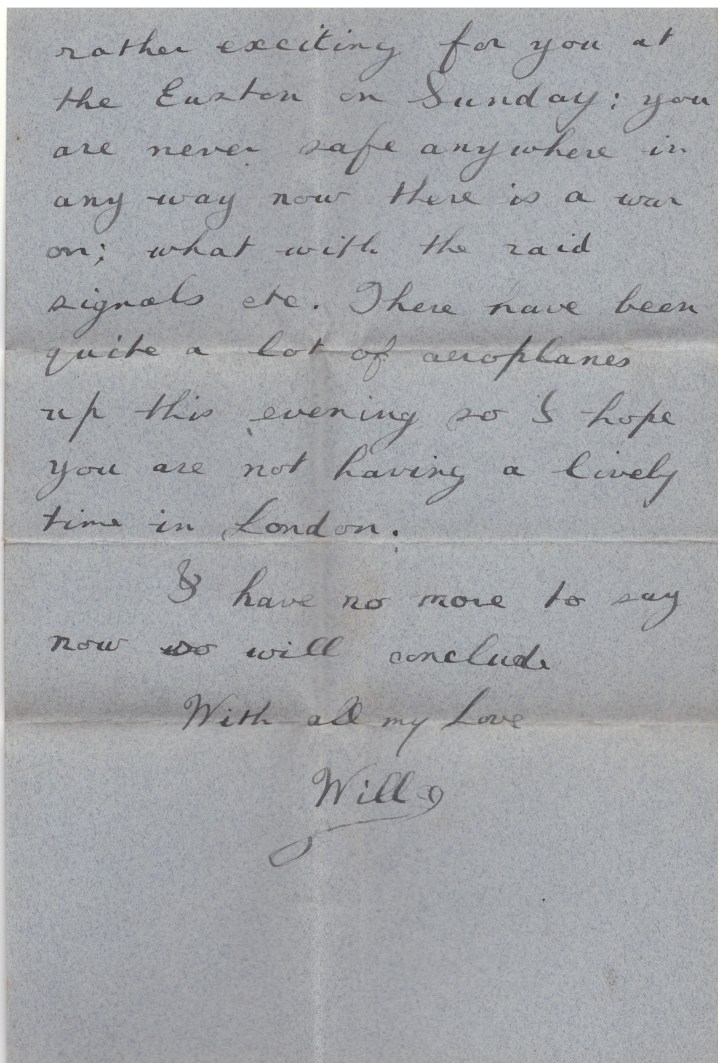 rather exciting for you at
the Euston on Sunday; you
are never safe anywhere in
any way now there is a war
on; what with the raid
signals etc. There have been
quite a lot of aeroplanes
up this evening so I hope
you are not having a lively
time in London.
I have no more to say
now so will conclude
With all my Love
Will